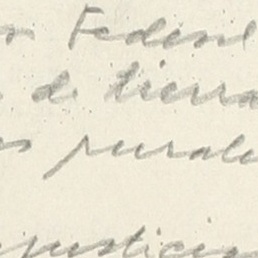 Federal
de tierra
rurale
justicia